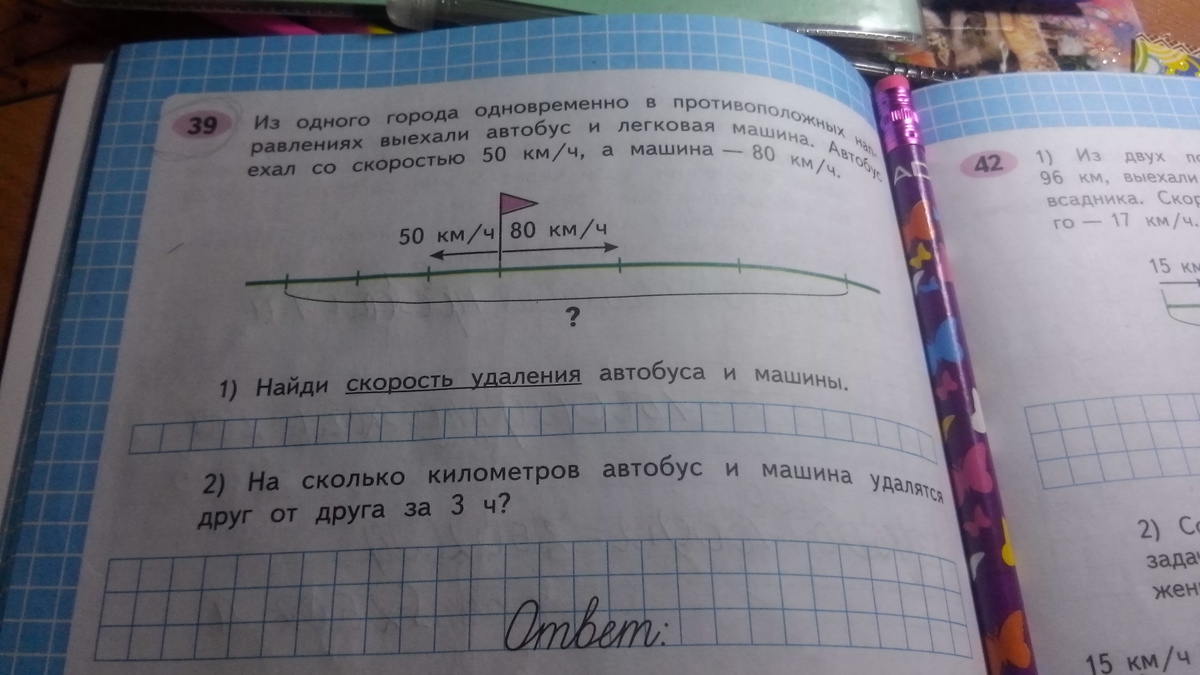 39
Из одного города одновременно в противоположных нап-
равлениях выехали автобус и легковая машина. Автобус
ехал со скоростью 50 км/ч, а машина — 80 км/ч.
50 км/ч 80 км/ч
?
1) Найди скорость удаления автобуса и машины.
2) На сколько километров автобус и машина удалятся
друг от друга за 3 ч?
Ответ:
42
1) Из двух
96 км, выехали
всадника.
го — 17 км/ч.
15 км
2)
15 км/ч